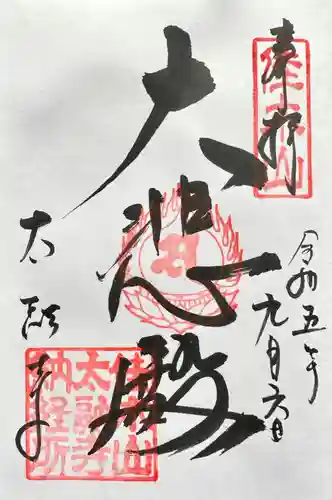 奉拝
令和五年
九月六日
大悲殿
太融寺
佳木山
太融寺
納経所